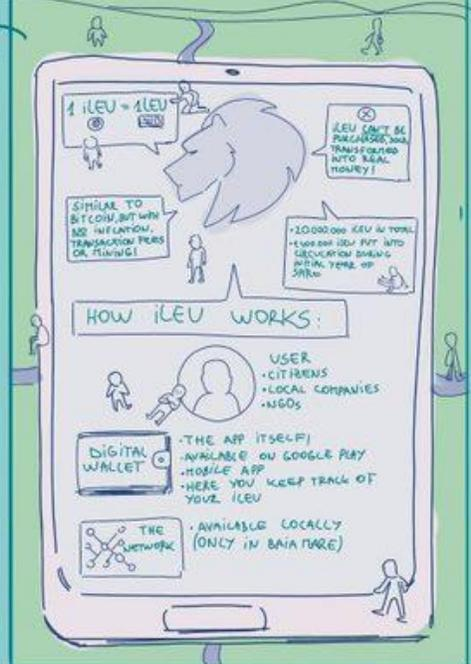 1 iLEU = 1LEU
iLEU CAN'T BE
PURCHASED,
TRANSFORMED
INTO REAL
MONEY!
SIMILAR TO
BITCOIN, BUT WITH
NO INFLATION,
TRANSACTION FEES
OR MINING!
iLEU IN TOTAL
iLEU PUT INTO
CIRCULATION DURING
INITIAL YEAR OF
HOW iLEU WORKS:
USER
• CITIZENS
• LOCAL COMPANIES
• NGOs
DIGITAL
WALLET
• THE APP ITSELF!
• AVAILABLE ON GOOGLE PLAY
• MOBILE APP
• HERE YOU KEEP TRACK OF
YOUR iLEU
THE
NETWORK
• AVAILABLE LOCALLY
(ONLY IN BAIA MARE)